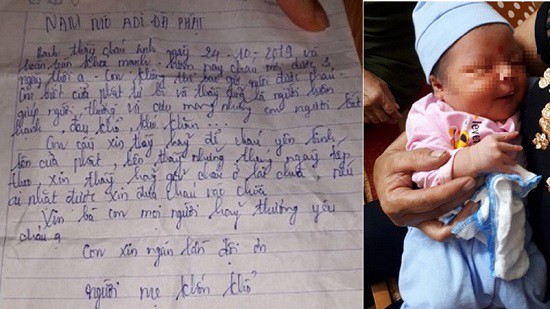 NAM MÔ ADI ĐÀ PHẬT
thầy cháu sinh ngày 24-10-2019 và
hoàn toàn khỏe mạnh. hôm nay cháu mới được 3
ngày thôi ạ. Con không thể bao giờ mới được
Con biết cửa phật từ bi và thầy cũng là người luôn
giúp người thương và cưu mang những con người bất
hạnh, đau khổ, khó khăn...
Con cầu xin thầy hãy để cháu yên bình
bên cửa phật, bên thầy những tháng ngày tiếp
theo. xin thầy hãy giữ cháu ở lại chùa, nếu
ai nhặt được xin đưa cháu vào chùa
Xin bà con mọi người hãy thương yêu
cháu ạ
Con xin ngàn lần đội ơn
người mẹ khốn khổ